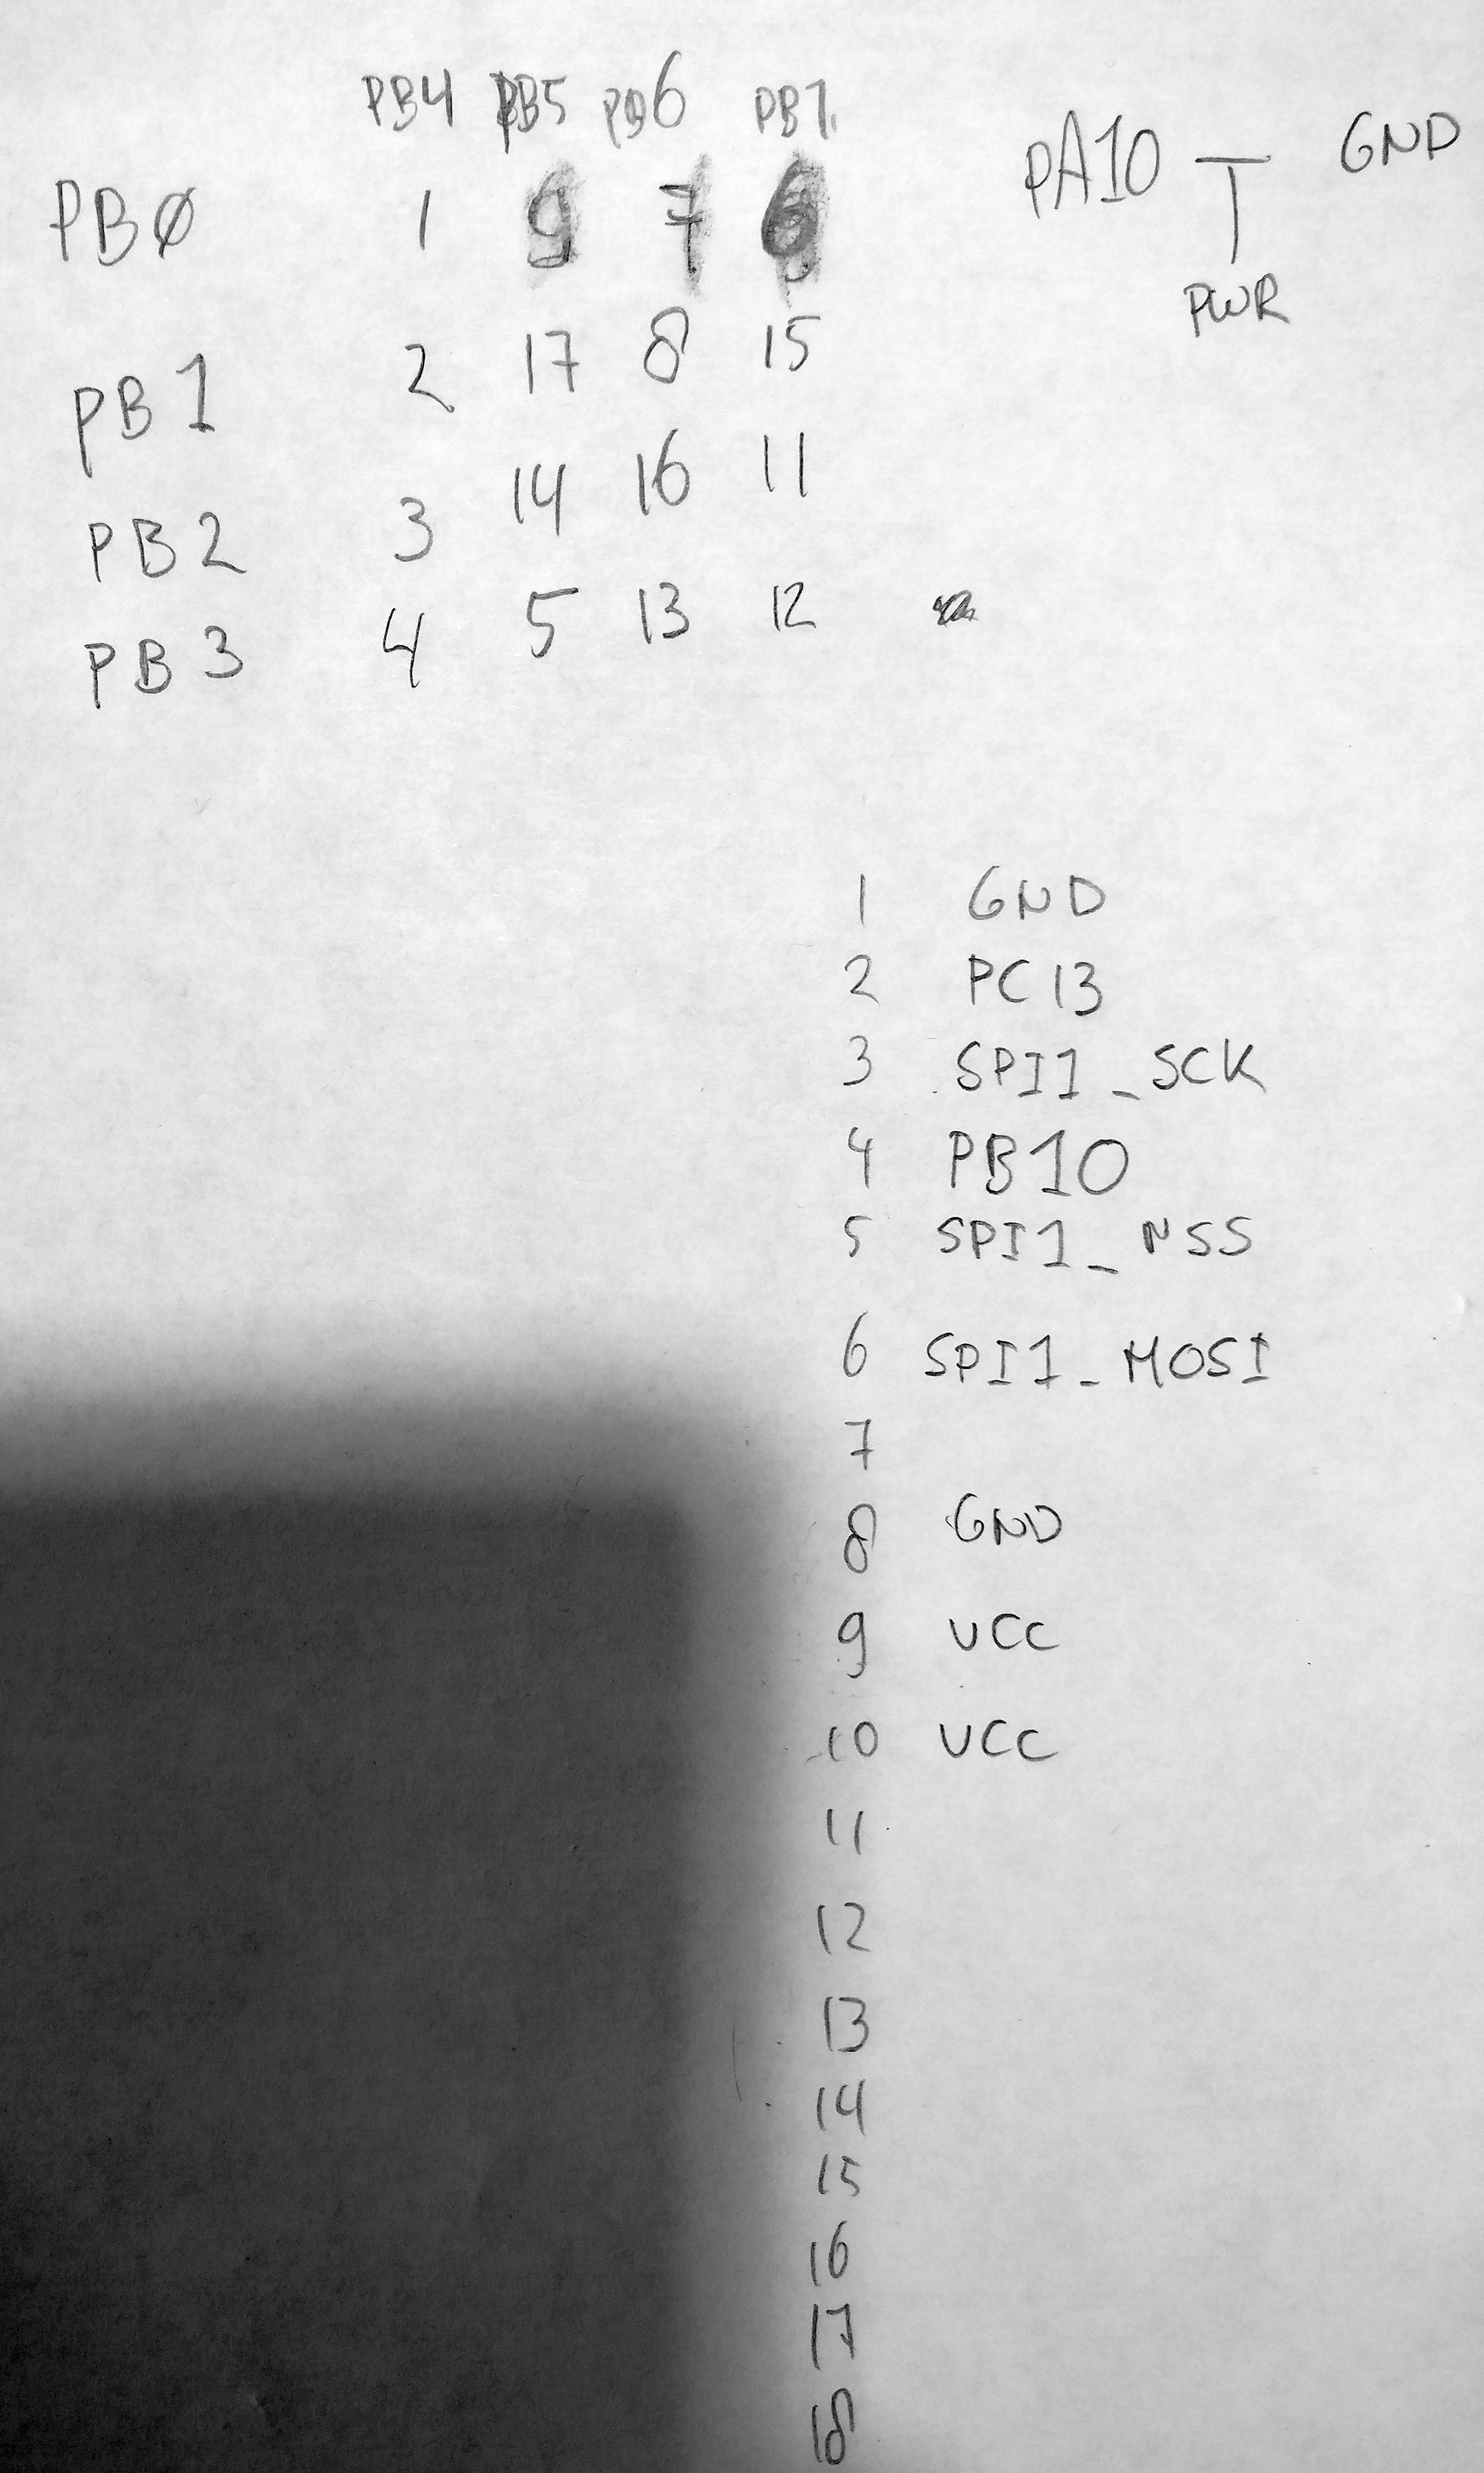 PB4 PB5 PB6 PB7
PBØ 1 9 7 6
PB1 2 17 8 15
PB2 3 14 16 11
PB3 4 5 13 12
PA10 GND
PWR
1 GND
2 PC13
3 SPI1_SCK
4 PB10
5 SPI1_NSS
6 SPI1-MOSI
7
8 GND
9 VCC
10 VCC
11
12
13
14
15
16
17
18